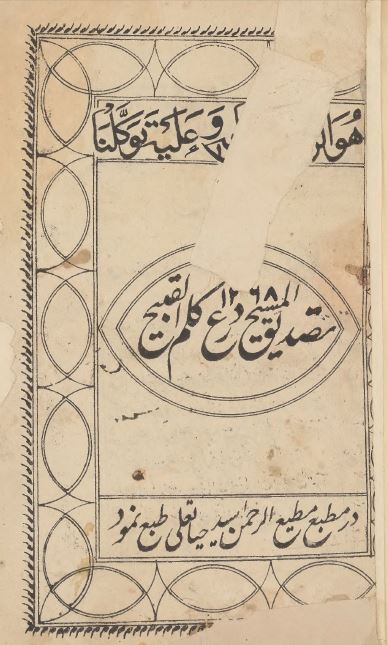 هُوَ الر وَ عَلَيْهِ تَوَكَّلْنَا
۱۲۶۸
تصديق المسيح درع كلم القبيح
در مطبع مطيع الرحمن سيد حياتعلى طبع نمود